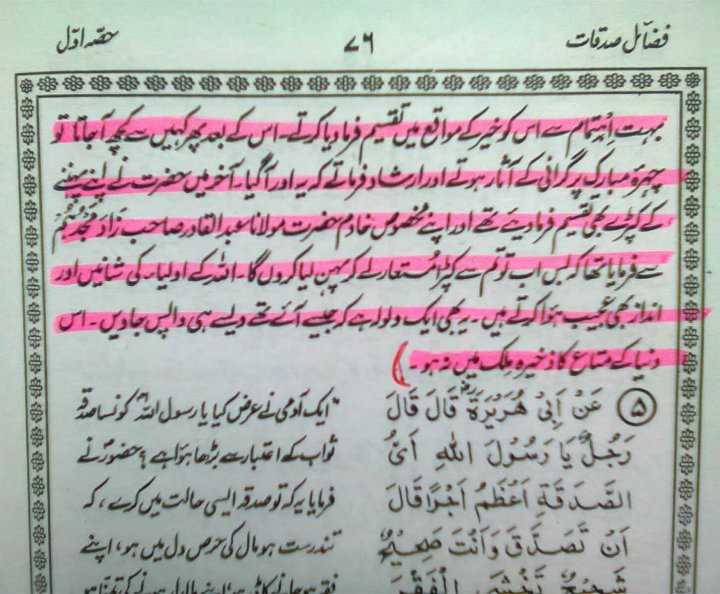 فضائل صدقات ۷۶ حصہ اوّل
بہت اہتمام سے اس کو خیر کے مواقع میں تقسیم فرما دیا کرتے۔ اس کے بعد پھر کہیں سے کچھ آجاتا تو
چہرۂ مبارک پر گرانی کے آثار ہوتے اور ارشاد فرماتے کہ یہ اور آگیا۔ آخر میں حضرت نے اپنے پہننے
کے کپڑے بھی تقسیم فرما دیئے تھے اور اپنے مخصوص خادم حضرت مولانا عبدالقادر صاحب زَادَ مَجْدُہُمْ
سے فرمایا تھا کہ بس اب تو تم سے کپڑا مُستعار لے کر پہن لیا کروں گا۔ اللہ کے اولیاء کی شانیں اور
انداز بھی عجیب ہوا کرتے ہیں۔ یہ بھی ایک ولولہ ہے کہ جیسے آئے تھے ویسے ہی واپس جاویں۔ اس
دنیا کے متاع کا ذخیرہ مِلک میں نہ ہو۔
۵ عَنْ اَبِیْ هُرَیْرَةَ قَالَ قَالَ
رَجُلٌ یَا رَسُوْلَ اللهِ اَیُّ
الصَّدَقَةِ اَعْظَمُ اَجْرًا قَالَ
اَنْ تَصَدَّقَ وَاَنْتَ صَحِیْحٌ
شَحِیْحٌ تَخْشَی الْفَقْرَ
ایک آدمی نے عرض کیا یا رسول اللہ کونسا صدقہ
ثواب کے اعتبار سے بڑھا ہوا ہے؟ حضورؐ نے
فرمایا یہ کہ تو صدقہ ایسی حالت میں کرے، کہ
تندرست ہو مال کی حرص دل میں ہو، اپنے
فقیر ہو جانے کا ڈر ہو، اپنے مالدار ہونے کی تمنّا ہو